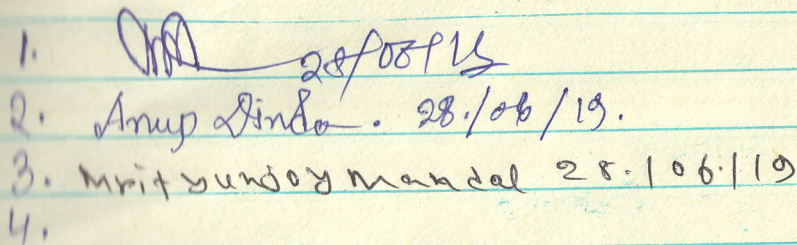 1. 28/06/19
2. Anup Dinda. 28./06/19.
3. Mrityunjoy Mandal 28./06./19
4.